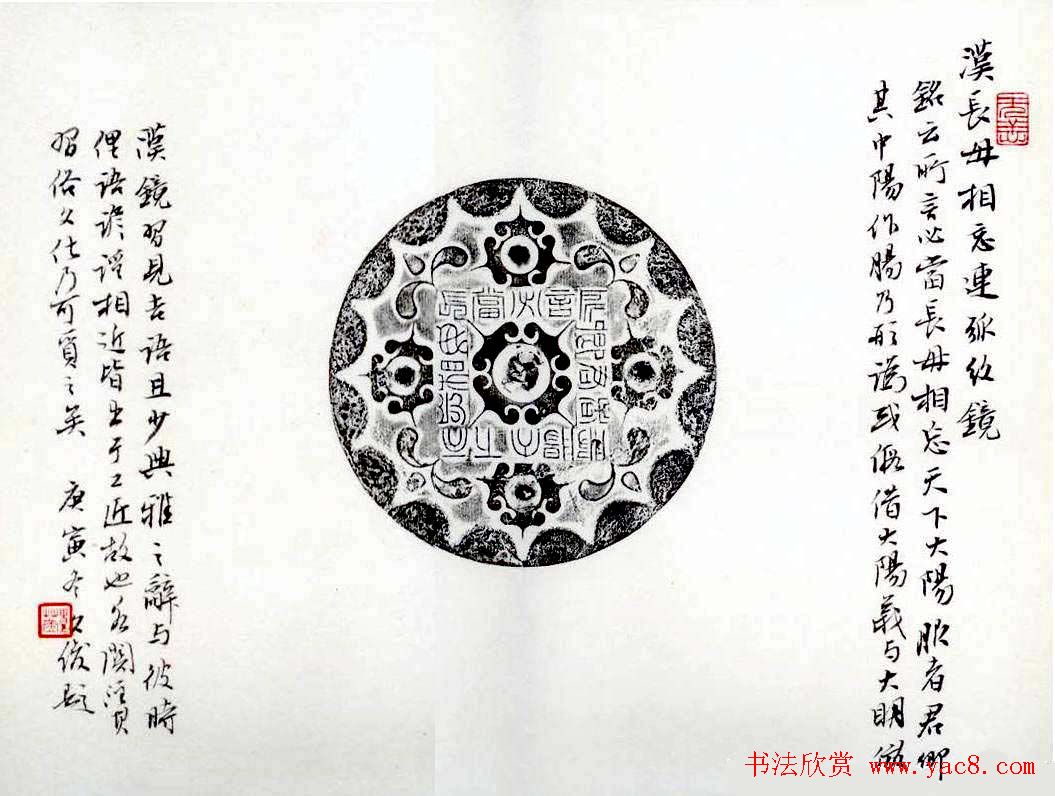 漢長毋相忘連弧紋鏡
銘云所言必當長毋相忘天下大陽服者君卿
其中陽作腸乃形譌或假借大陽義与大明
漢鏡習見吉語且少典雅之辭与彼時
俚語謠相近皆出于工匠故也名
習俗久佚乃可貴之矣 庚寅冬 俊題
书法欣赏 www.yac8.com